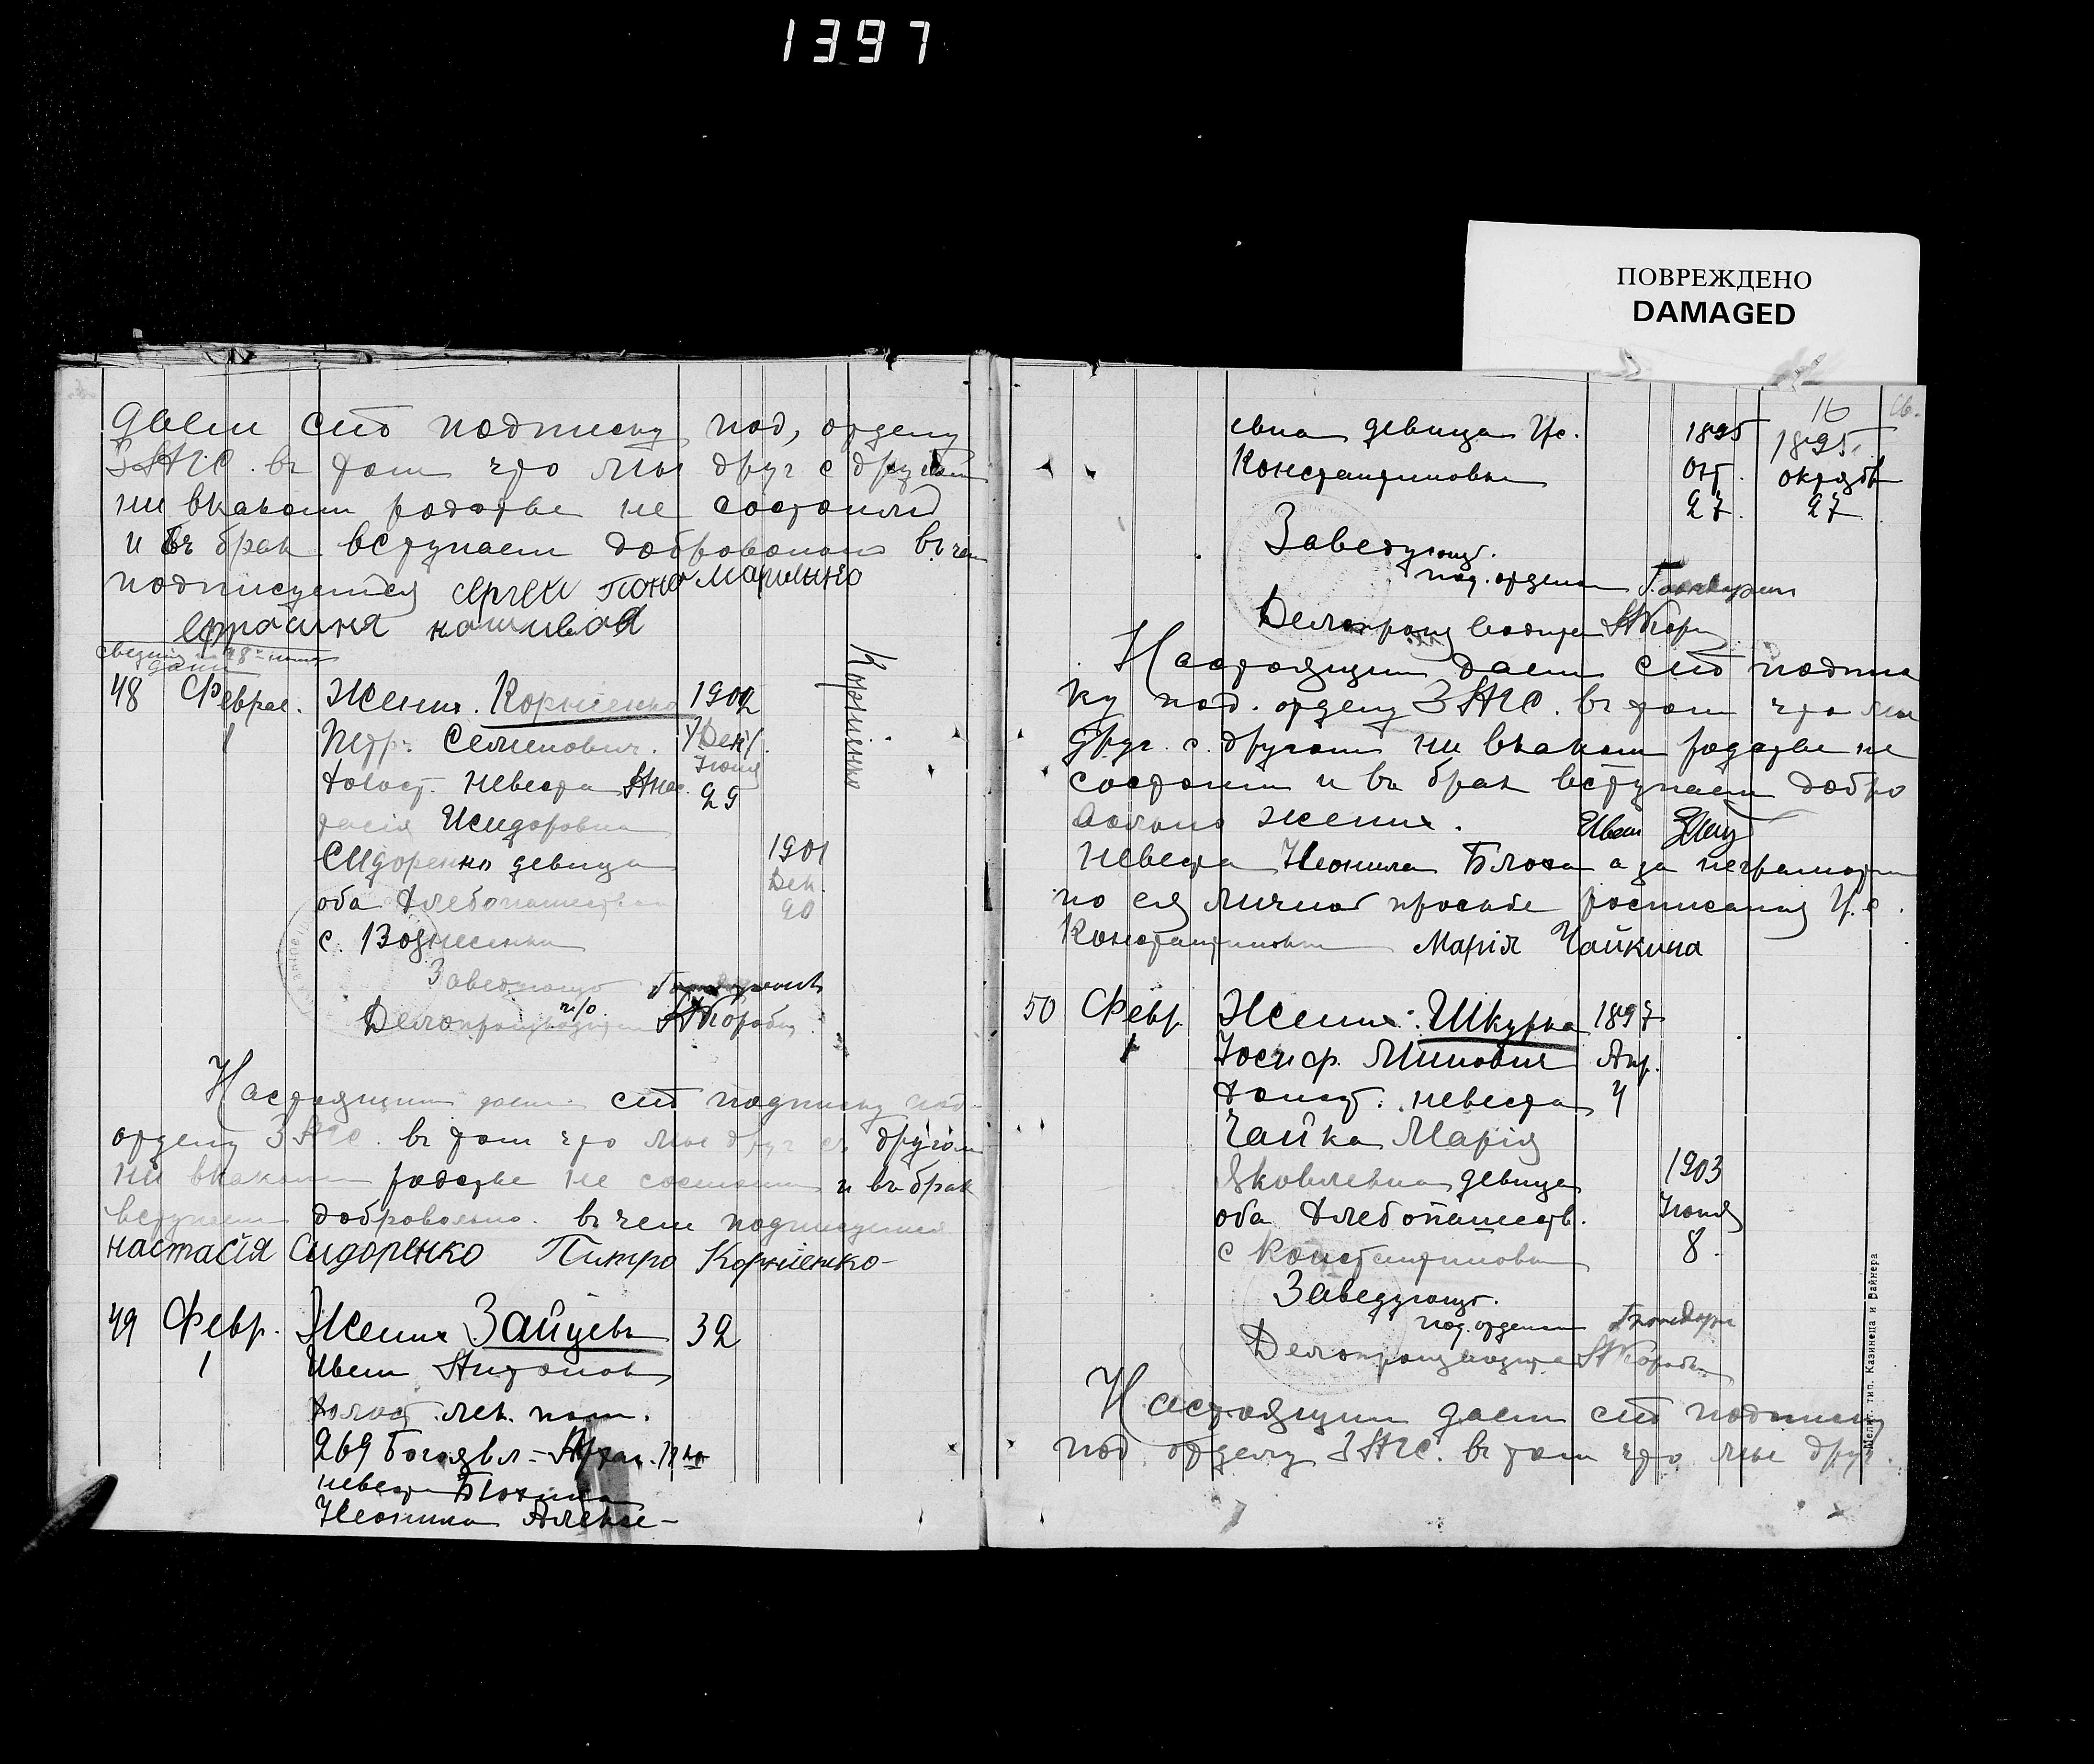 1397
ПОВРЕЖДЕНО
DAMAGED
даем сию подписку под, отделу
ЗАГС. въ том что мы друг с другом
ни вкаком родстве не состоим
и въ брак вступаем добровольно въ чем
подписуемся Сергеи Пономаренко
Ефросиня
48 Феврал. Жених. Корниенко 1902
1 Петр. Семенович. Дек.
Июня
холост. невеста Анас 29
тасія Исидоровна
Сидоренко девица 1901
Дек.
оба хлебопашества 20
с. Вознесенки
Корниенко
Заведующ
п/о
Делопроизводител
Настоящим даем сию подписку под
отделу ЗАГС. въ том что мы друг съ другом
ни вкаком родстве не состоим и въ брак
вступаем добровольно. въ чем подписуемся
настасія Сидоренко Питро Корниенко
49 Февр. Жених Зайцевъ 32
1 Иван Антонов
холост. пол.
269 Богоявл-
невеста
Неонила Алексе-
16
евна девица Ис. 1895 1895
Константиновки Окт. октября
27 27
Заведующ.
под. отделом
Делопроизводител
Настоящим даем сию подпис
ку под. отделу ЗАГС. въ том что мы
друг. с. другом ни вкаком родстве не
состоим и въ брак вступаем добро
вольно жених. Иван
Невеста Неонила Блоха а за неграмотн
по ея личной просьбе росписался
Константиновки Марія Чайкина
50 Февр Жених. Шкурка 1897
1 Іосиф. Минович Апр.
холост. невеста 4
Чайка Марія
Яковлевна девица 1903
оба хлебопашеств. Июня
с Константиновки 8.
Заведующ.
под. отделом
Делопроизводител
Настоящим даем сию подписку
под отделу ЗАГС. въ том что мы друг.
Мелит. тип. Казинеца и Вайнера